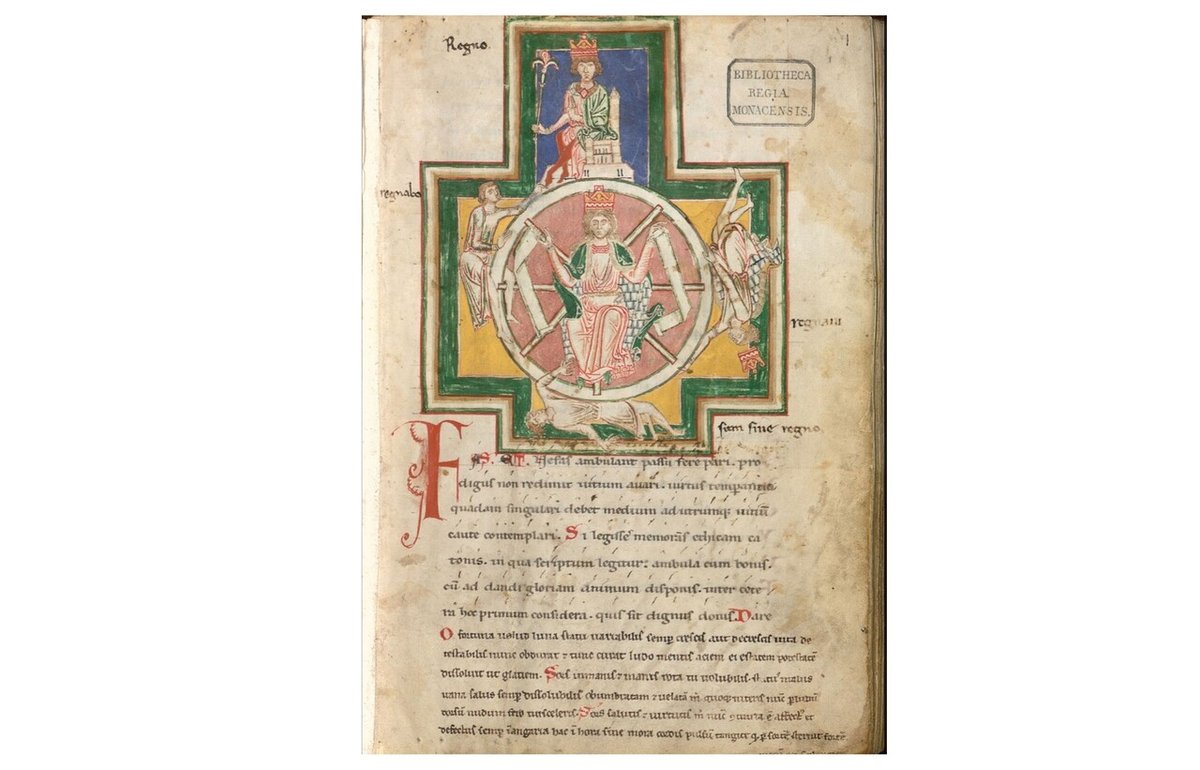 Regno.
1
BIBLIOTHECA
REGIA
MONACENSIS.
regnabo
regnaui
sum sine regno.
FAS. ET. Nefas ambulant passu fere pari. pro
digus non redimit uitium auari. uirtus temperantia
quadam singulari debet medium ad utrumque uitiũ
caute contemplari. Si legisse memoras ethicam ca
tonis. in qua scriptum legitur. ambula cum bonis.
cũ ad dandi gloriam animum disponis. inter cete
ra hoc primum considera. quis sit dignus donis. Dare
O fortuna uelud luna statu uariabilis semp crescis aut decrescis uita de
testabilis nunc obdurat & tunc curat ludo mentis aciem egestatem potestatẽ
dissoluit ut glaciem. Sors inmanis & inanis rota tu uolubilis status malus
uana salus semp dissolubilis obumbratam & uelatã m quoque niteris nũc p ludũ
dorsum nudum fero tui sceleris. Sors salutis & uirtutis m nunc
defectus semp ĩ angaria hac ĩ hora sine mora cordis pulsũ tangite